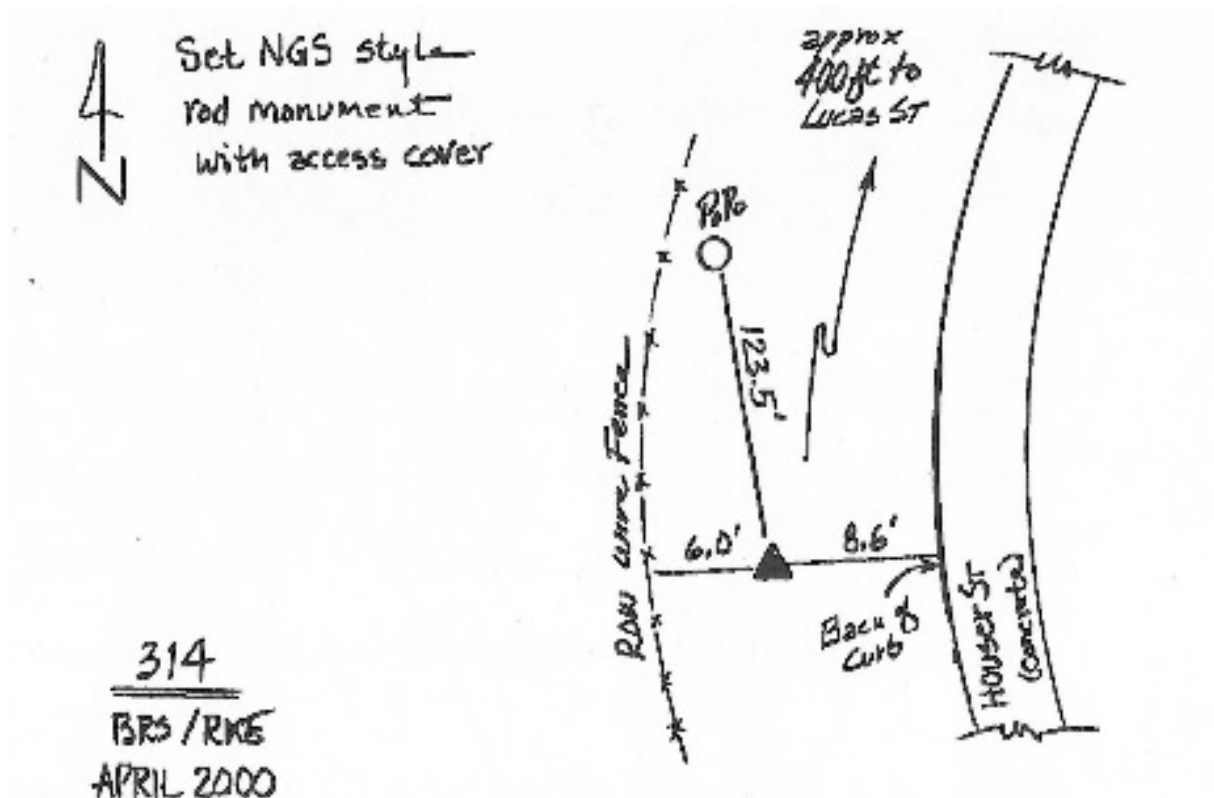 Set NGS style
rod monument
with access cover
N
approx
400ft to
Lucas ST
P.P.
123.5'
ROW Wire Fence
6.0'
8.6'
Back of
curb
HOUSER ST
(concrete)
314
BRS / RKE
APRIL 2000